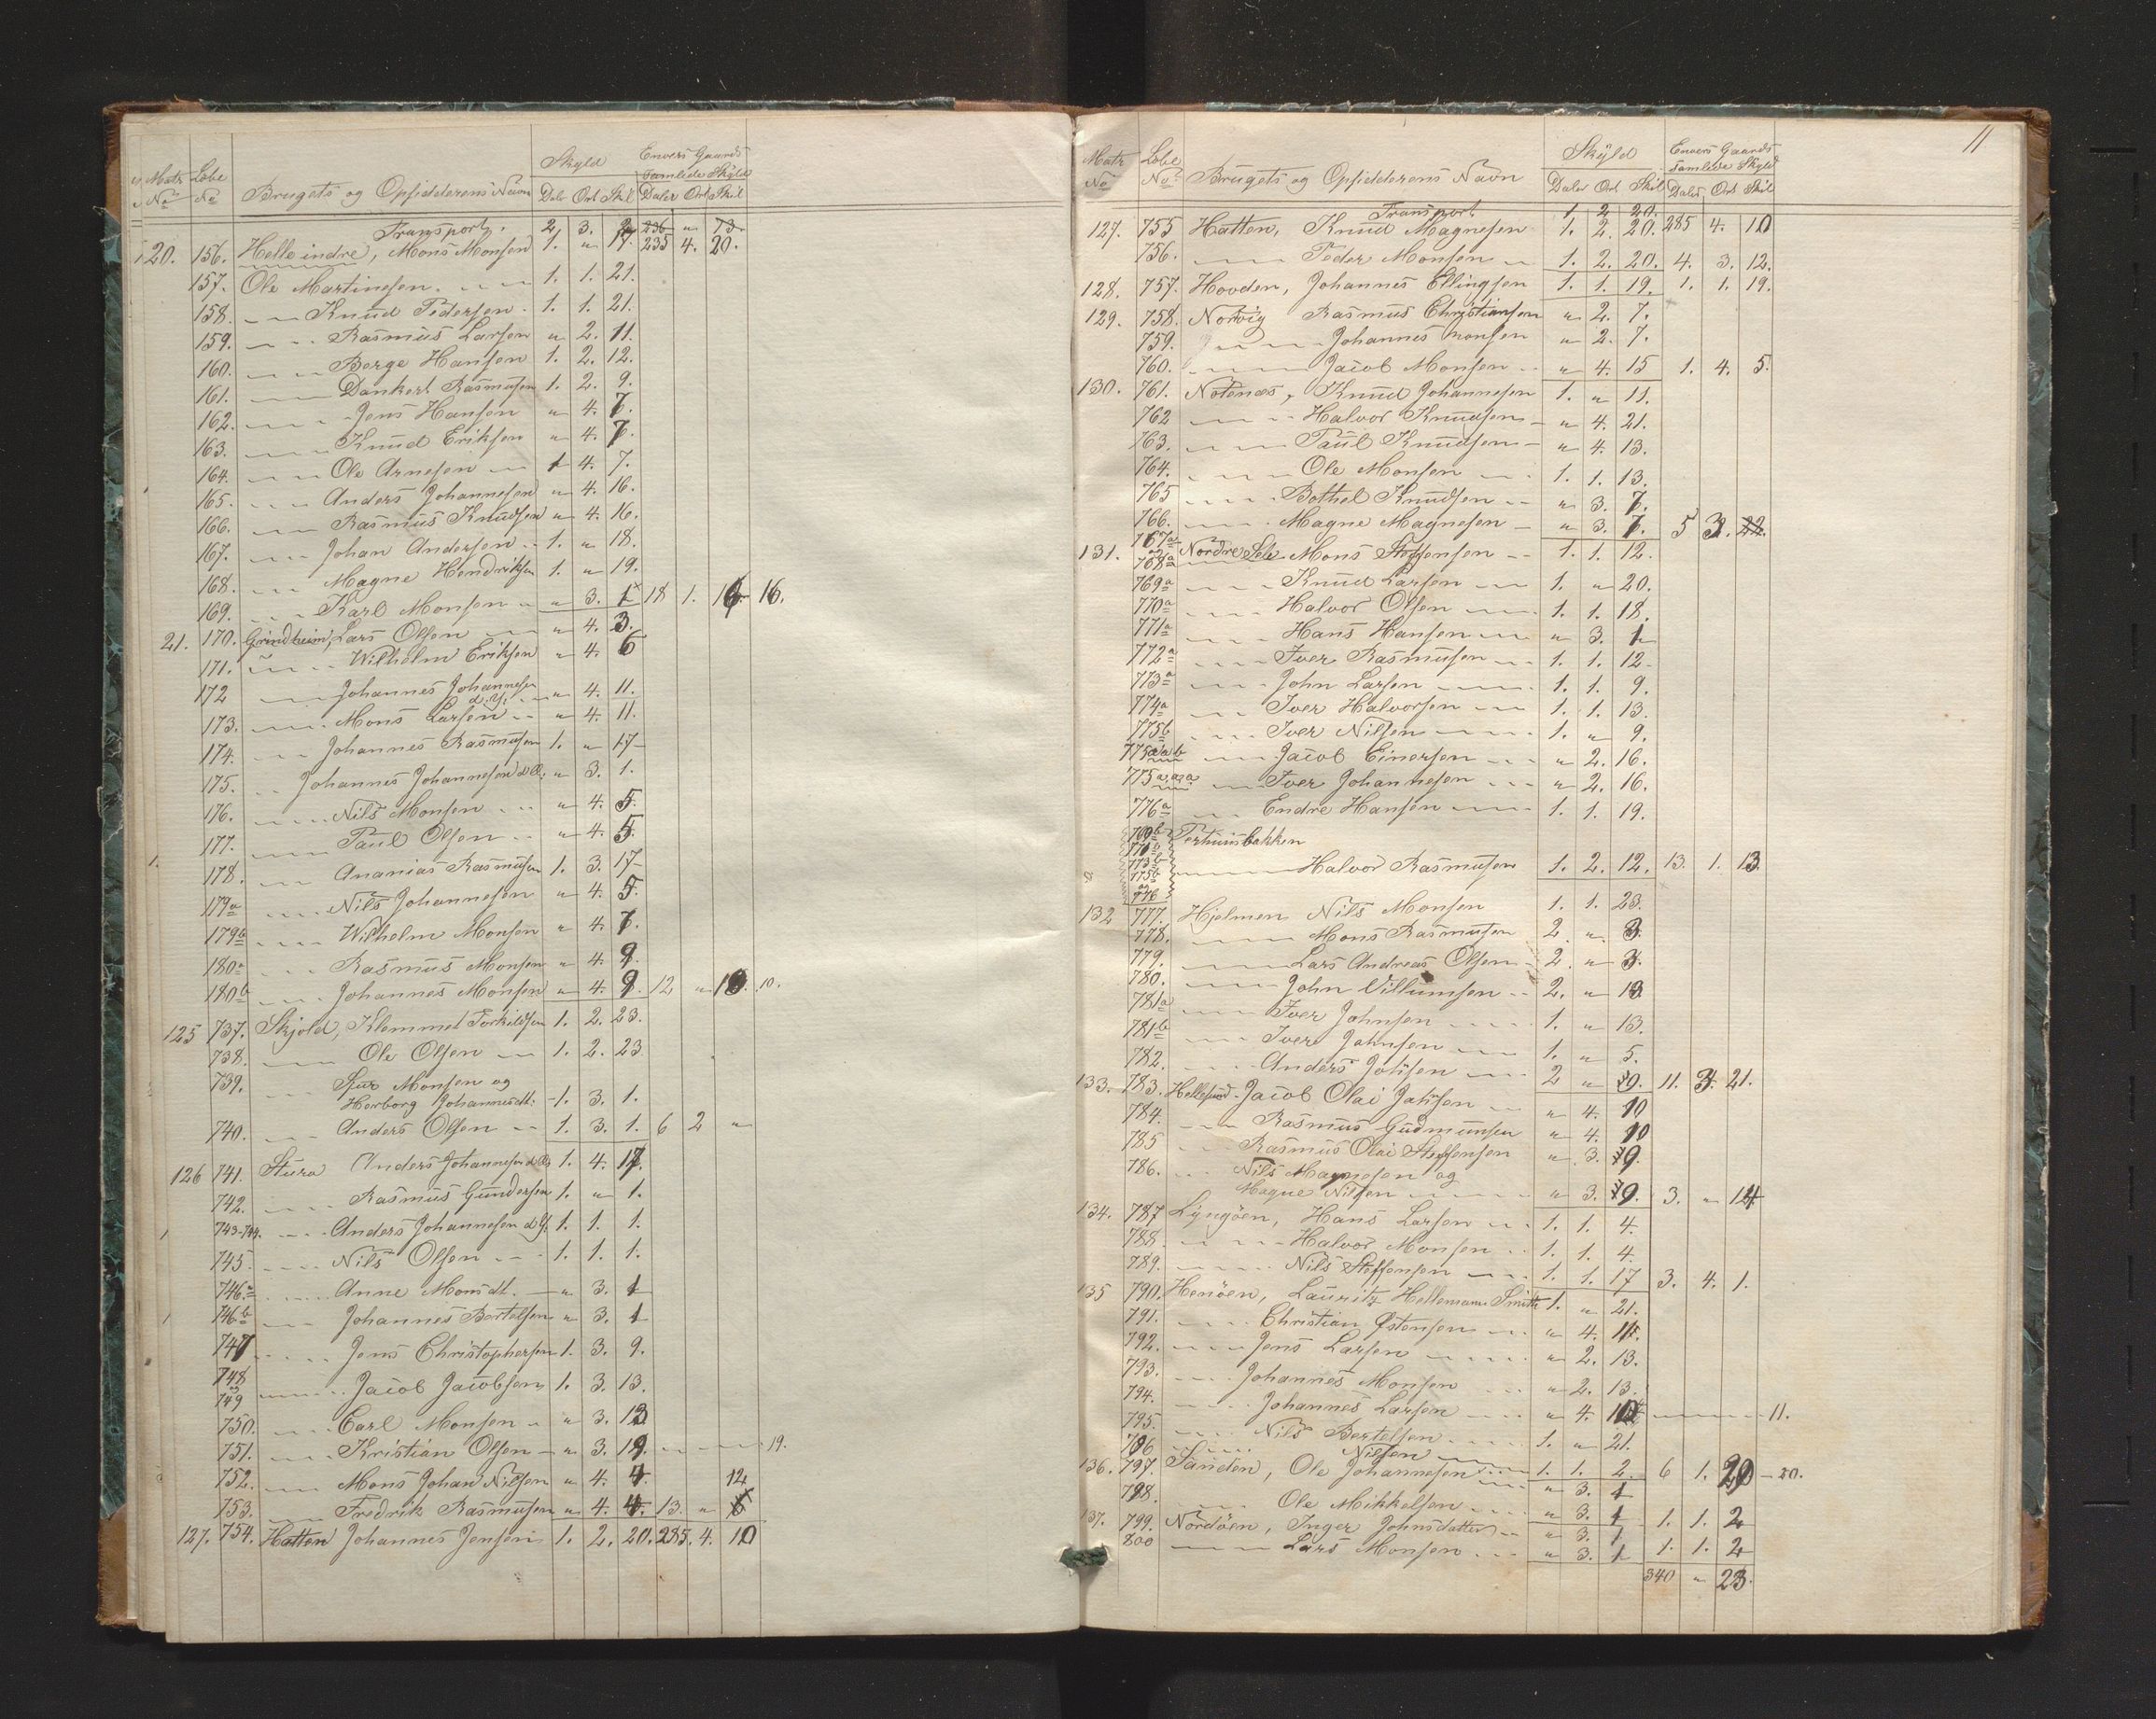 Matr No Løbe No Brugets og Opsidderens Navn Skyld Dalr Ort Skil Envers Gaards samlede Skyld Daler Ort Skil
Transport. 2. 3. 236 " 73.
120. 156. Helle indre, Mons Monsen 1. " 17. 235 4. 20.
157. Ole Martinesen. " " 1. 1. 21.
158. " " Knud Pedersen. 1. 1. 21.
159. " " Rasmus Larsen " 2. 11.
160. " " Børge Hansen 1. 2. 12.
161. " Dankert Rasmusen 1. 2. 9.
162. " " Jens Hansen " 4. 7.
163. " Knud Eriksen " 4. 7.
164. " " Ole Arnesen " 4. 7.
165. " " Anders Johannesen " 4. 16.
166. " Rasmus Knudsen " 4. 16.
167. " " Johan Andersen " 1. " 18.
168. " " Magne Hendriksen 1. " 19.
169. " " Karl Monsen " " 3. 1 18 1. 16. 16.
21. 170. Grindheim, Lars Olsen " 4. 3.
171. " " Wilhelm Eriksen " 4. 6
172 " Johannes Johannesen d.Y. " 4. 11.
173. " Mons Larsen " " 4. 11.
174. " " Johannes Rasmusen 1. " 17
175. " " Johannes Johannesen d Æ. " 3. 1.
176. " Nils Monsen " " 4. 5.
177. " Paul Olsen " " 4. 5.
178. " " Ananias Rasmusen 1. 3. 17
179a " Nils Johannesen " 4. 5.
179b " Wilhelm Monsen " 4. 7.
180a " Rasmus Monsen " 4. 9.
180b " Johannes Monsen " 4. 9. 12 " 10. 10.
125 737. Skjold, Klemmet Torkildsen 1. 2. 23.
738. " Ole Olsen " 1. 2. 23
739. " Sjur Monsen og
Herborg Johannesdt. 1. 3. 1.
740. " Anders Olsen " 1. 3. 1. 6 2 "
126 741. Stura Anders Johannesen d Æ 1. 4. 17.
742. " Rasmus Gundersen 1. " 1.
743-744. " Anders Johannesen d Y. 1. 1. 1.
745. " Nils Olsen " 1. 1. 1.
746.a " Anne Monsdt. " 3. 1
746b " Johannes Bertelsen " 3. 1
747. " Jens Christophersen 1. 3. 9.
748 og 749 " Jacob Jacobsen 1. 3. 13.
750. " Carl Monsen " " 3. 13
751. " Kristian Olsen " " 3. 19. " 19.
752. " Mons Johan Nilsen " 4. 4. 12
753. " Fredrik Rasmusen " 4. 4. 13. "
127. 754. Hatten Johannes Jensen 1. 2. 20. 285. 4. 10
11
Matr No Løbe No Brugets og Opsidderens Navn Skyld Daler Ort Skil Envers Gaards samlede Skyld Daler Ort Skil
Transport 1 2 20.
127. 755 Hatten, Knud Magnesen 1. 2. 20. 285 4. 10
756. " Peder Monsen " 1. 2. 20. 4. 3. 12.
128. 757. Hovden, Johannes Ellingsen 1. 1. 19. 1. 1. 19.
129. 758. Nørvig Rasmus Christiansen " 2. 7.
759. " " Johannes Monsen " 2. 7.
760. " Jacob Monsen " " 4. 15 1. 4. 5.
130. 761. Notenæs, Knud Johannesen 1. " 11.
762 " " Halvor Knudsen " 4. 21.
763. " Paul Knudsen " 4. 13.
764. " Ole Monsen " 1. 1. 13.
765 " Bothel Knudsen " " 3. 7.
766. " Magne Magnesen " 3. 7. 5 3. 22.
131. 767a og 768a Nordre Sele Mons Steffensen " 1. 1. 12.
769a " Knud Larsen " 1. " 20.
770a " Halvor Olsen " 1. 1. 18.
771a " Hans Hansen " " 3. 1
772a " Iver Rasmusen " 1. 1. 12
773a " John Larsen " 1. 1. 9.
774a " Iver Halvorsen " 1. 1. 13.
775b " Iver Nilsen " 1. " 9.
775aab " Jacob Einersen " " 2. 16.
775aaa " Iver Johannesen " " 2. 16.
776a " Endre Hansen " 1. 1. 19.
769b 771b 773b 775b og 776
" Halvor Rasmusen 1. 2. 12. 13. 1. 13.
132 777. Hjelmen Nils Monsen 1. 1. 23.
778. " Mons Rasmusen 2. " 3.
779. " Lars Andreas Olsen 2. " 3.
780. " John Villumsen " 2. " 13
781a " Iver Johnsen " 1. " 13.
781b " Iver Johnsen " 1. " 5.
782. " Anders Johsen " 2 " 9. 11. 3. 21.
133. 783. Hellesund Jacob Olai Johsen " 4. 10
784. " Rasmus Gudmunsen " 4. 10
785 " Rasmus Olai Steffensen " 3. 9.
786. " Nils Magnesen og
Magne Nilsen " 3. 9. 3. " 14
134. 787 Lyngøen, Hans Larsen " 1. 1. 4.
788. " Halvor Monsen " 1. 1. 4.
789. " Nils Steffensen " 1. 1. 17 3. 4. 1.
135 790. Henøen, Lauritz Hellemann Smith 1. " 21.
791. " Christian Østensen " " 4. 11.
792. " Jens Larsen " " 2. 13.
793. " Johannes Monsen " " 2. 13.
794. " Johannes Larsen " " 4. " 11.
795. " Nils Bertelsen " 1. " 21.
796 " Nilsen
136. 797. Sanden, Ole Johannesen " 1. 1. 2. 6 1. 20 - 20.
798. " Ole Mikkelsen " 3. 1
137. 799. Nordøen, Inger Johnsdatter " 3. 1 1. 1. 2
800 " Lars Monsen " 3. 1 1. 1. 2
340 " 23.